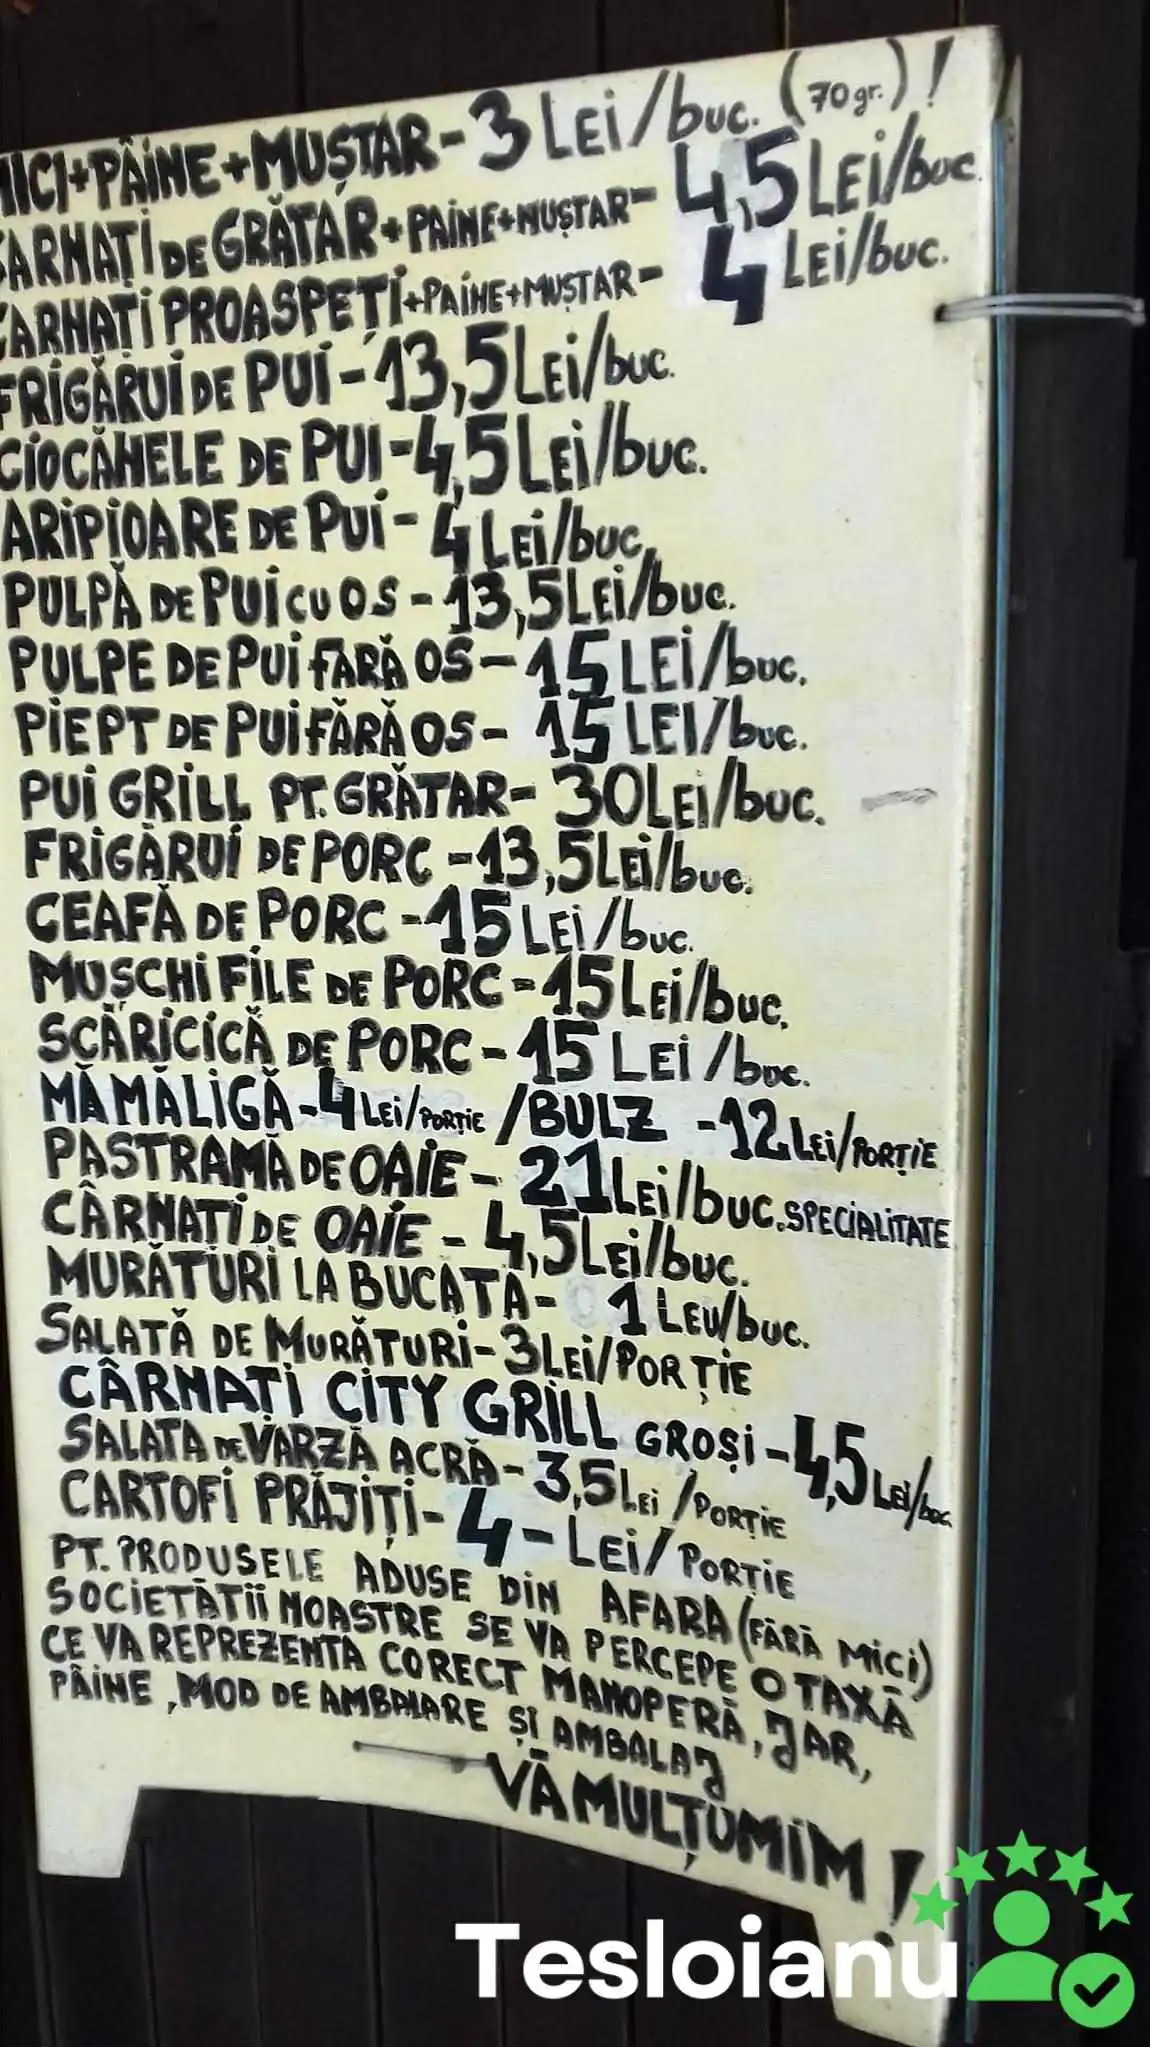 MICI+PÂINE+MUȘTAR-3 LEI/buc. (70gr.)!
CARNAȚI DE GRĂTAR+PAINE+MUȘTAR- 4,5 LEI/buc.
CARNAȚI PROASPEȚI+PAINE+MUSTAR- 4 LEI/buc.
FRIGĂRUI DE PUI-13,5 LEI/buc.
CIOCĂNELE DE PUI-4,5 LEI/buc.
ARIPIOARE DE PUI-4 LEI/buc.
PULPĂ DE PUI CU OS-13,5 LEI/buc.
PULPE DE PUI FĂRĂ OS-15 LEI/buc.
PIEPT DE PUI FĂRĂ OS-15 LEI/buc.
PUI GRILL PT. GRĂTAR-30 LEI/buc.
FRIGĂRUI DE PORC-13,5 LEI/buc.
CEAFĂ DE PORC-15 LEI/buc.
MUȘCHI FILE DE PORC-15 LEI/buc.
SCĂRICICĂ DE PORC-15 LEI/buc.
MĂMĂLIGĂ-4 LEI/PORȚIE /BULZ -12 LEI/PORȚIE
PASTRAMĂ DE OAIE-21 LEI/buc. SPECIALITATE
CÂRNAȚI DE OAIE-4,5 LEI/buc.
MURĂTURI LA BUCATĂ- 1 LEU/buc.
SALATĂ DE MURĂTURI-3 LEI/PORȚIE
CÂRNAȚI CITY GRILL GROȘI-4,5 LEI/buc.
SALATA DE VARZĂ ACRĂ-3,5 LEI/PORȚIE
CARTOFI PRĂJIȚI-4-LEI/PORȚIE
PT. PRODUSELE ADUSE DIN AFARA (FĂRĂ MICI)
SOCIETĂȚII NOASTRE SE VA PERCEPE O TAXĂ
CE VA REPREZENTA CORECT MANOPERĂ, JAR,
PÂINE, MOD DE AMBALARE ȘI AMBALAJ
VĂ MULȚUMIM!
Tesloianu